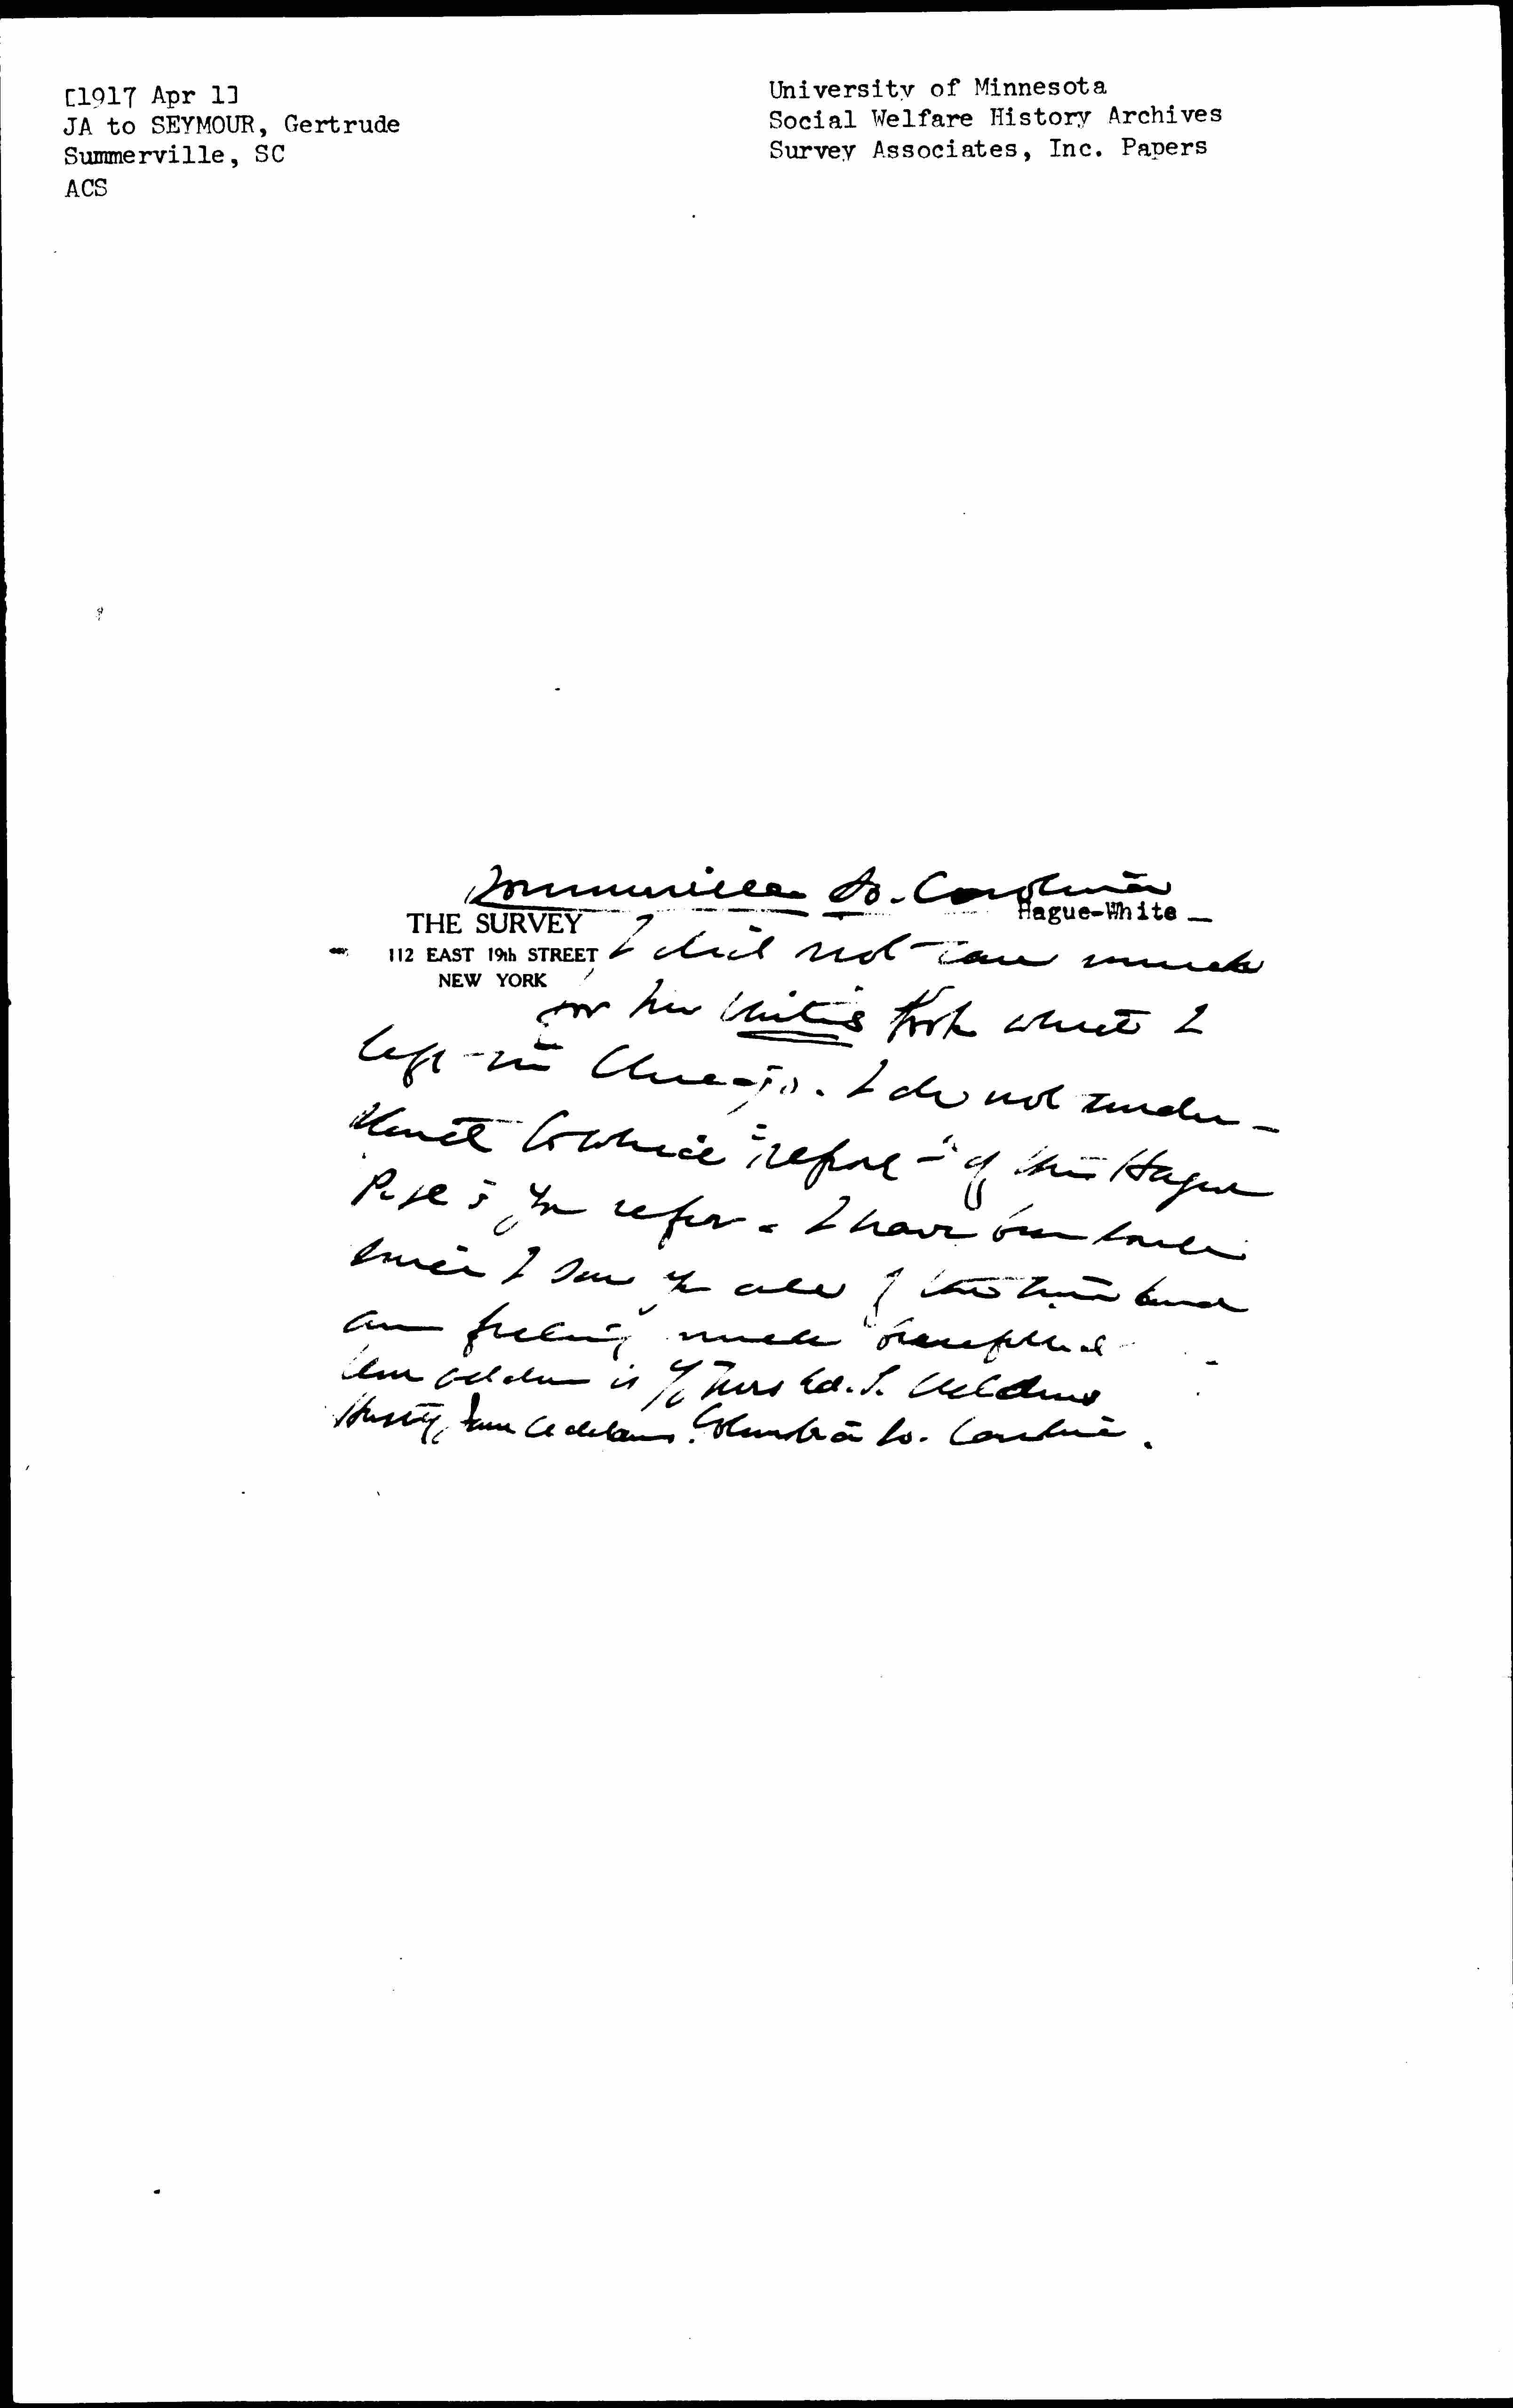 [1917 Apr 1]
JA to SEYMOUR, Gertrude
Summerville, SC
ACS
University of Minnesota
Social Welfare History Archives
Survey Associates, Inc. Papers
Summerville So. Carolina
Hague-White
THE SURVEY
112 EAST 19th STREET
NEW YORK
I did not care much
for her book which I
left in Chicago. I do not under-
stand to which "report" of the Hague
you refer. I have been
since I saw you all of the time and
am feeling much
address is c/o Mrs
Jane Addams. Columbia So. Carolina.